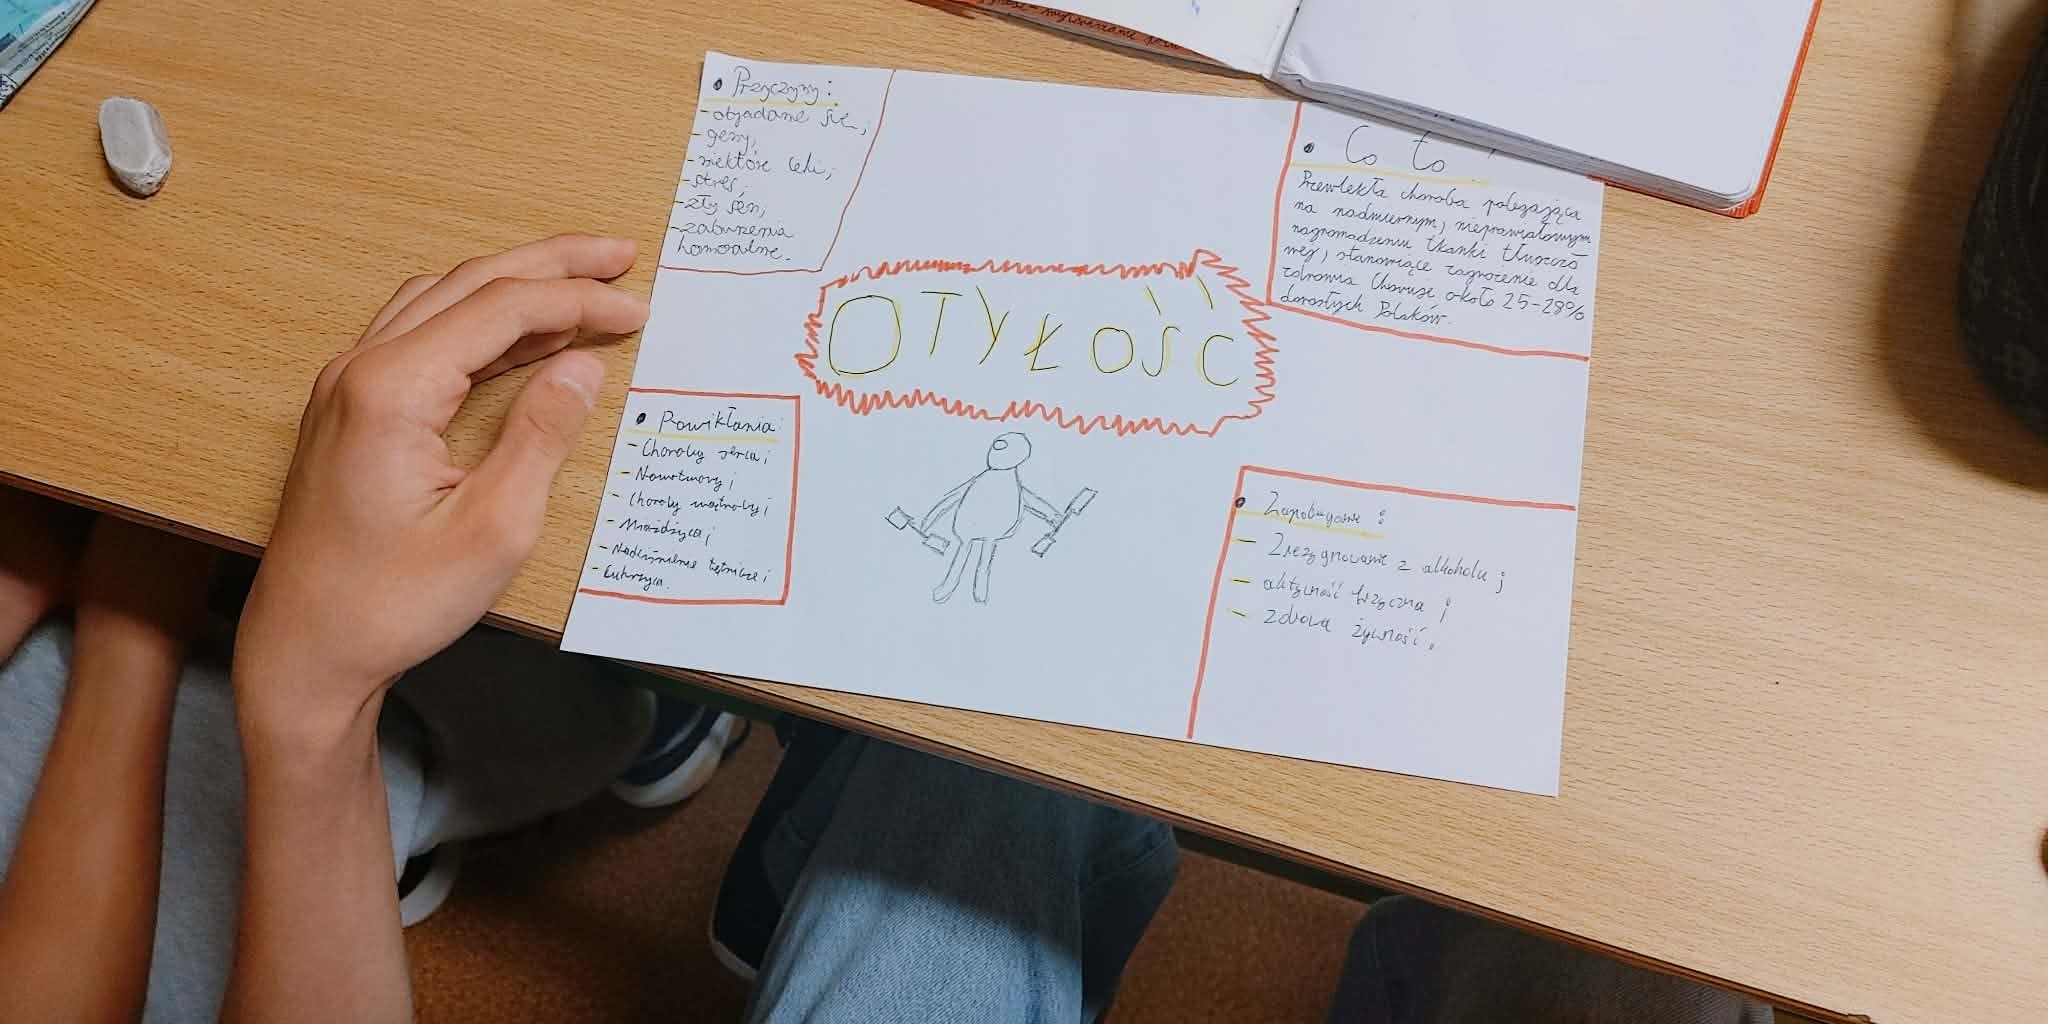 • Przyczyny:
- objadanie się;
- geny;
- niektóre leki;
- stres;
- zły sen;
- zaburzenia
homoralne.
• Co to ?
Przewlekła choroba polegająca
na nadmiernym, nieprawidłowym
nagromadzeniu tkanki tłuszczo
wej, stanowiące zagrożenie dla
zdrowia Choruje około 25-28%
dorosłych Polaków.
OTYŁOŚĆ
• Powikłania:
- Choroby serca;
- Nowotwory;
- Choroby wątroby;
- Miażdżyca;
- Nadciśnienie tętnicze;
- Cukrzyca.
• Zapobieganie:
- Zrezygnowanie z alkoholu;
- aktywność fizyczna;
- zdrowa żywność.